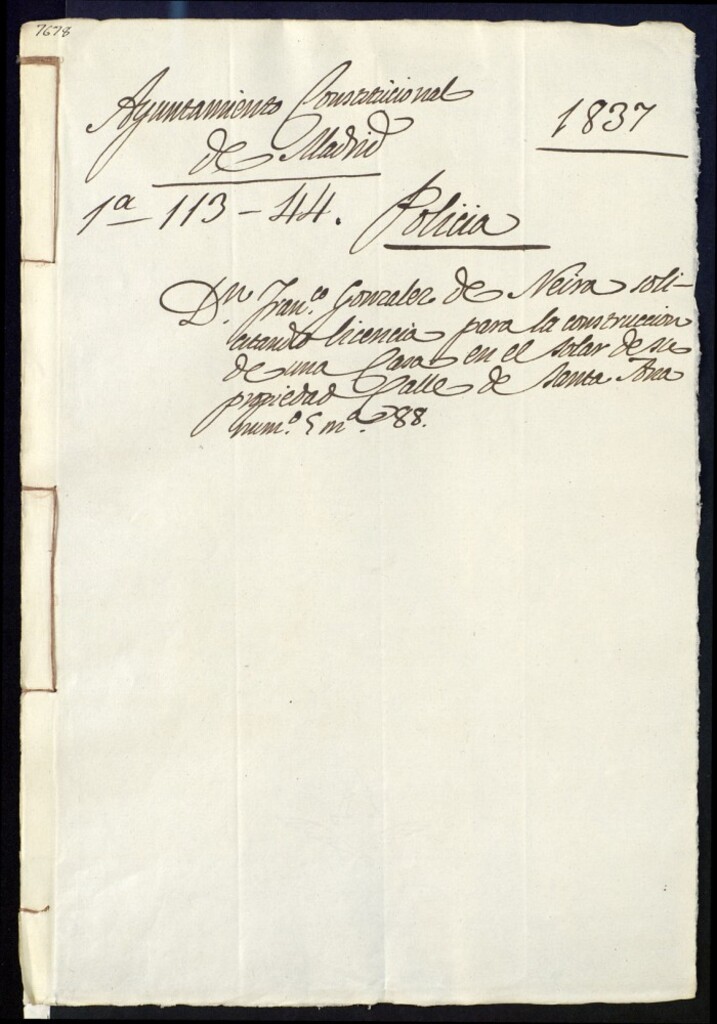 7678
Ayuntamiento Constitucional
de Madrid
1837
1ª 113-44.
Policia
Dn. Franco. Gonzalez de Neira soli-
citando licencia para la construccion
de una Casa en el solar de su
propiedad Calle de Santa Ana
numo. 5 ma. 88.